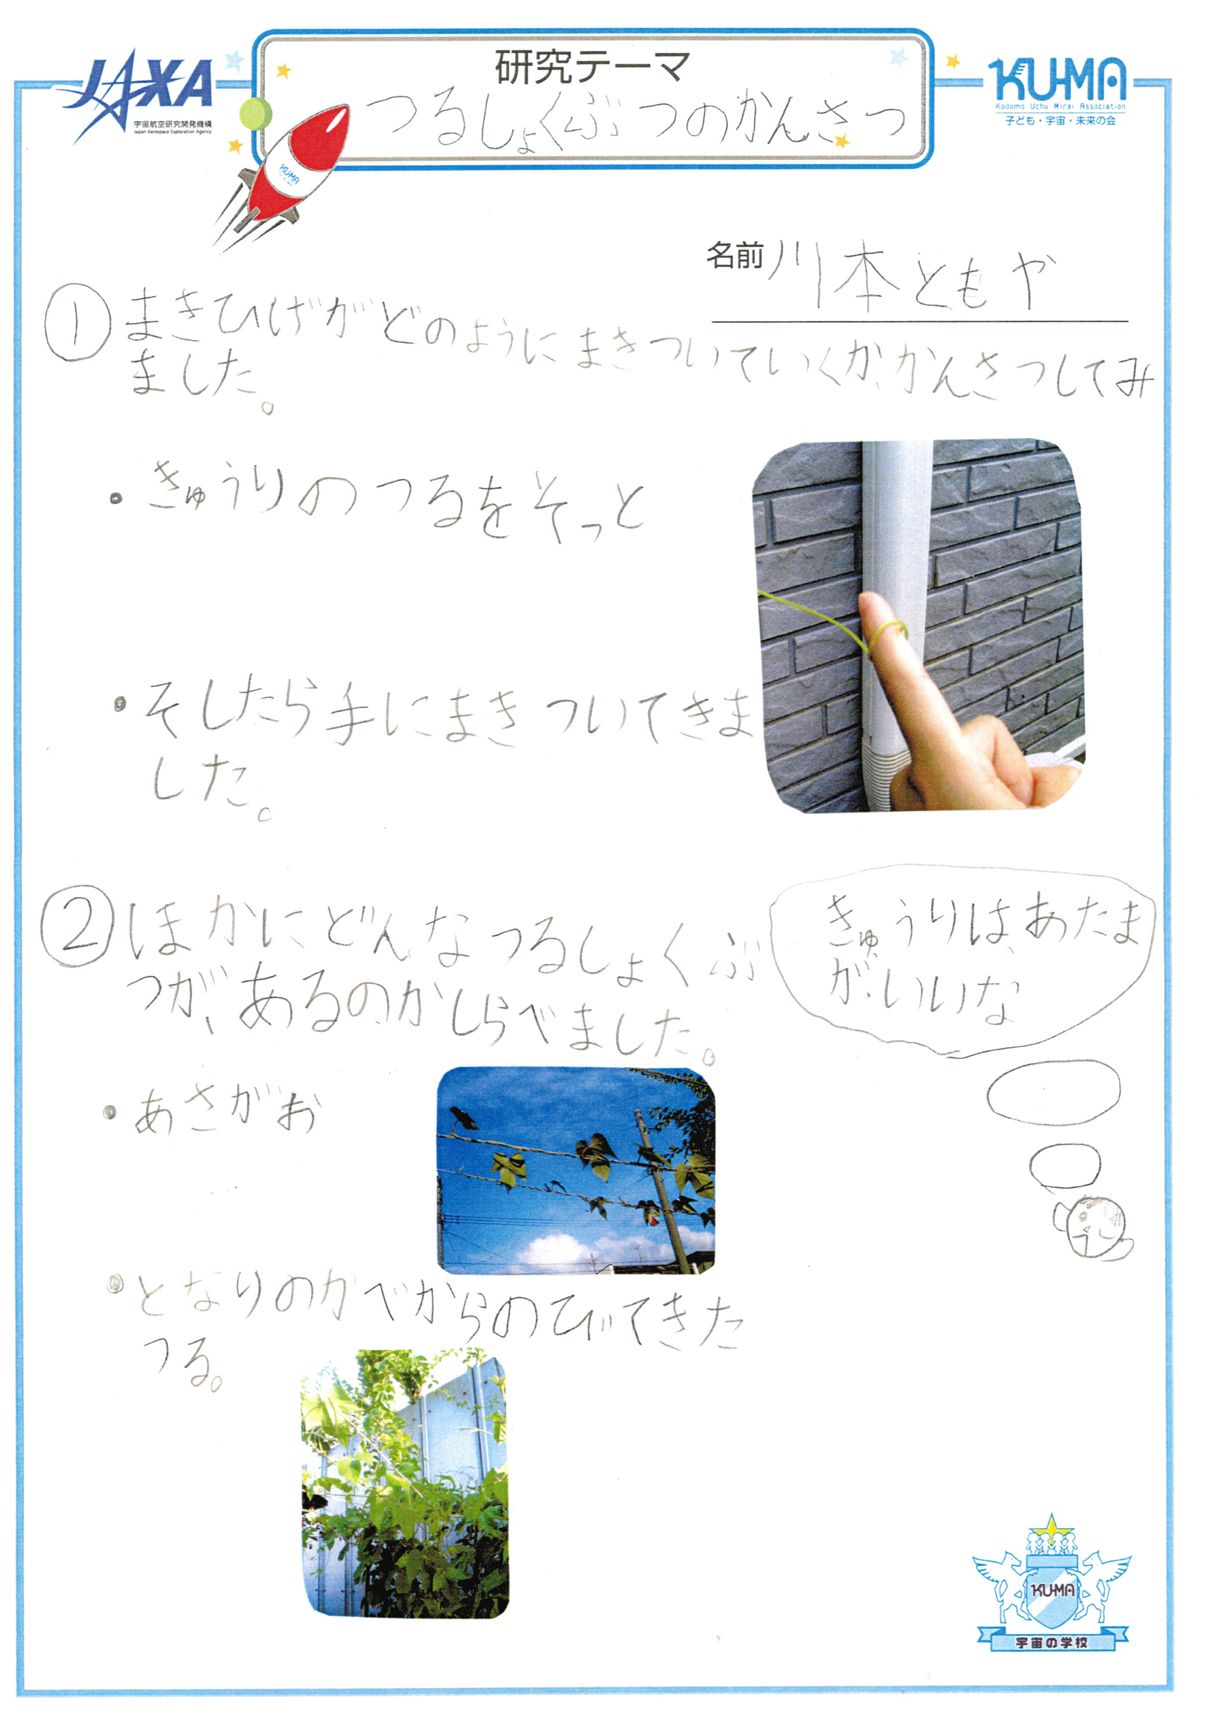 JAXA
宇宙航空研究開発機構
Japan Aerospace Exploration Agency
研究テーマ
つるしょくぶつのかんさつ
KU-MA
Kodomo Uchu Mirai Association
子ども・宇宙・未来の会
KU-MA
名前 川本ともや
① まきひげがどのようにまきついていくか、かんさつしてみ
ました。
・きゅうりのつるをそっと
・そしたら手にまきついてきま
した。
② ほかにどんなつるしょくぶ
つが、あるのかしらべました。
きゅうりは、あたま
が、いいな
・あさがお
・となりのかべからのびてきた
つる。
KU-MA
宇宙の学校